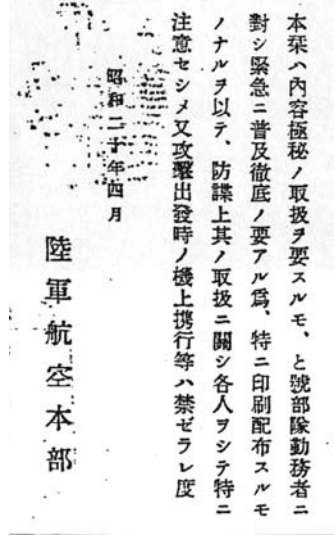 本栞ハ內容極秘ノ取扱ヲ要スルモ、と號部隊勤務者ニ
對シ緊急ニ普及徹底ノ要アル爲、特ニ印刷配布スルモ
ノナルヲ以テ、防諜上其ノ取扱ニ關シ各人ヲシテ特ニ
注意セシメ又攻擊出發時ノ機上携行等ハ禁ゼラレ度
昭和二十年四月
陸軍航空本部